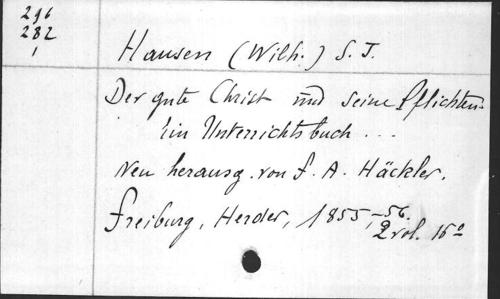 296
282
1
Hausen (Wilh.) S. J.
Der gute Christ und seine Pflichten.
Ein Unterrichtsbuch ...
Neu herausg. von F. A. Häckler.
Freiburg, Herder, 1855,-56.
2 vol. 16º